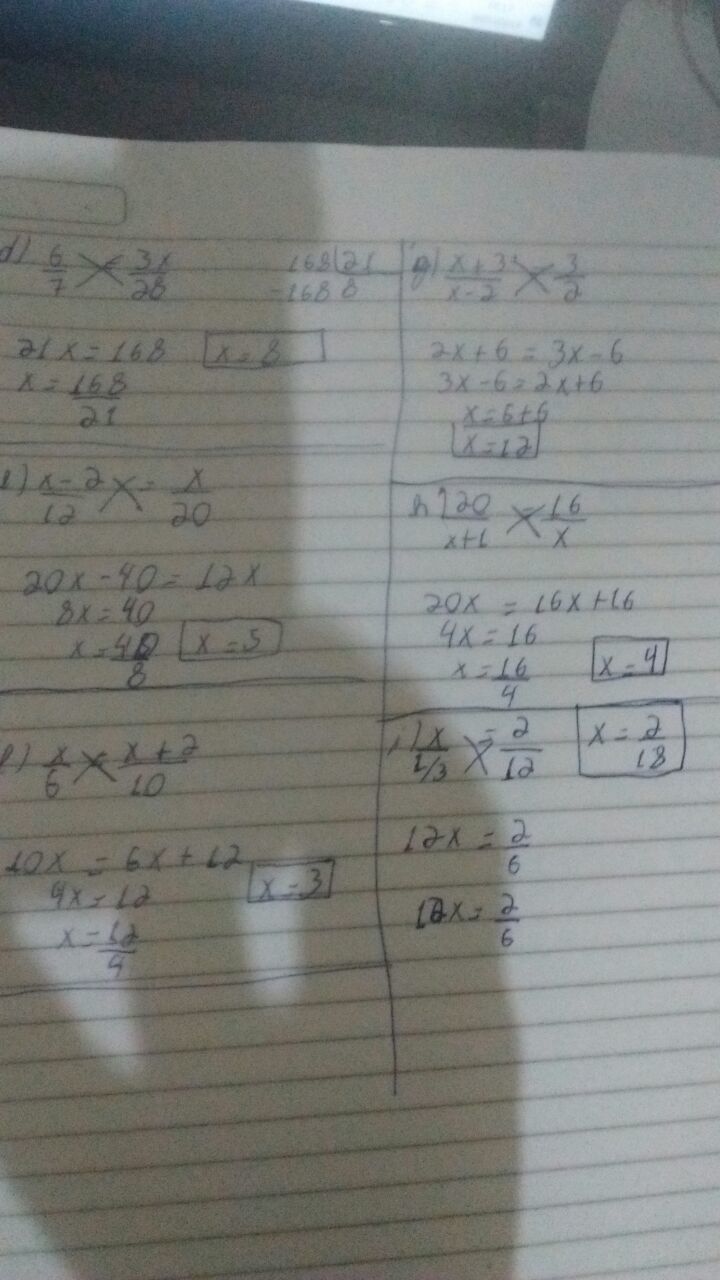 d) 6/7 = 3x/28
168 | 21
-168 8
21x = 168
x = 8
x = 168/21
e) x-2/12 = x/20
20x - 40 = 12x
8x = 40
x = 40/8
x = 5
f) x/6 = x+2/10
10x = 6x + 12
4x = 12
x = 3
x = 12/4
g) x+3/x-2 = 3/2
2x+6 = 3x-6
3x-6 = 2x+6
x = 6+6
x = 12
h) 20/x+1 = 16/x
20x = 16x+16
4x = 16
x = 16/4
x = 4
i) x/1/3 = 2/12
x = 2/18
12x = 2/6
12x = 2/6